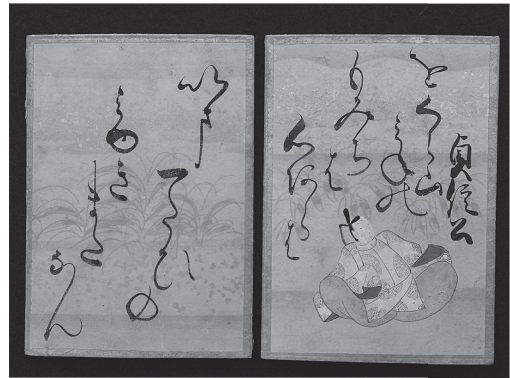 貞信公
をくら山
みねの
もみち
は
心あらは
いま
一たひの
みゆき
また
なん